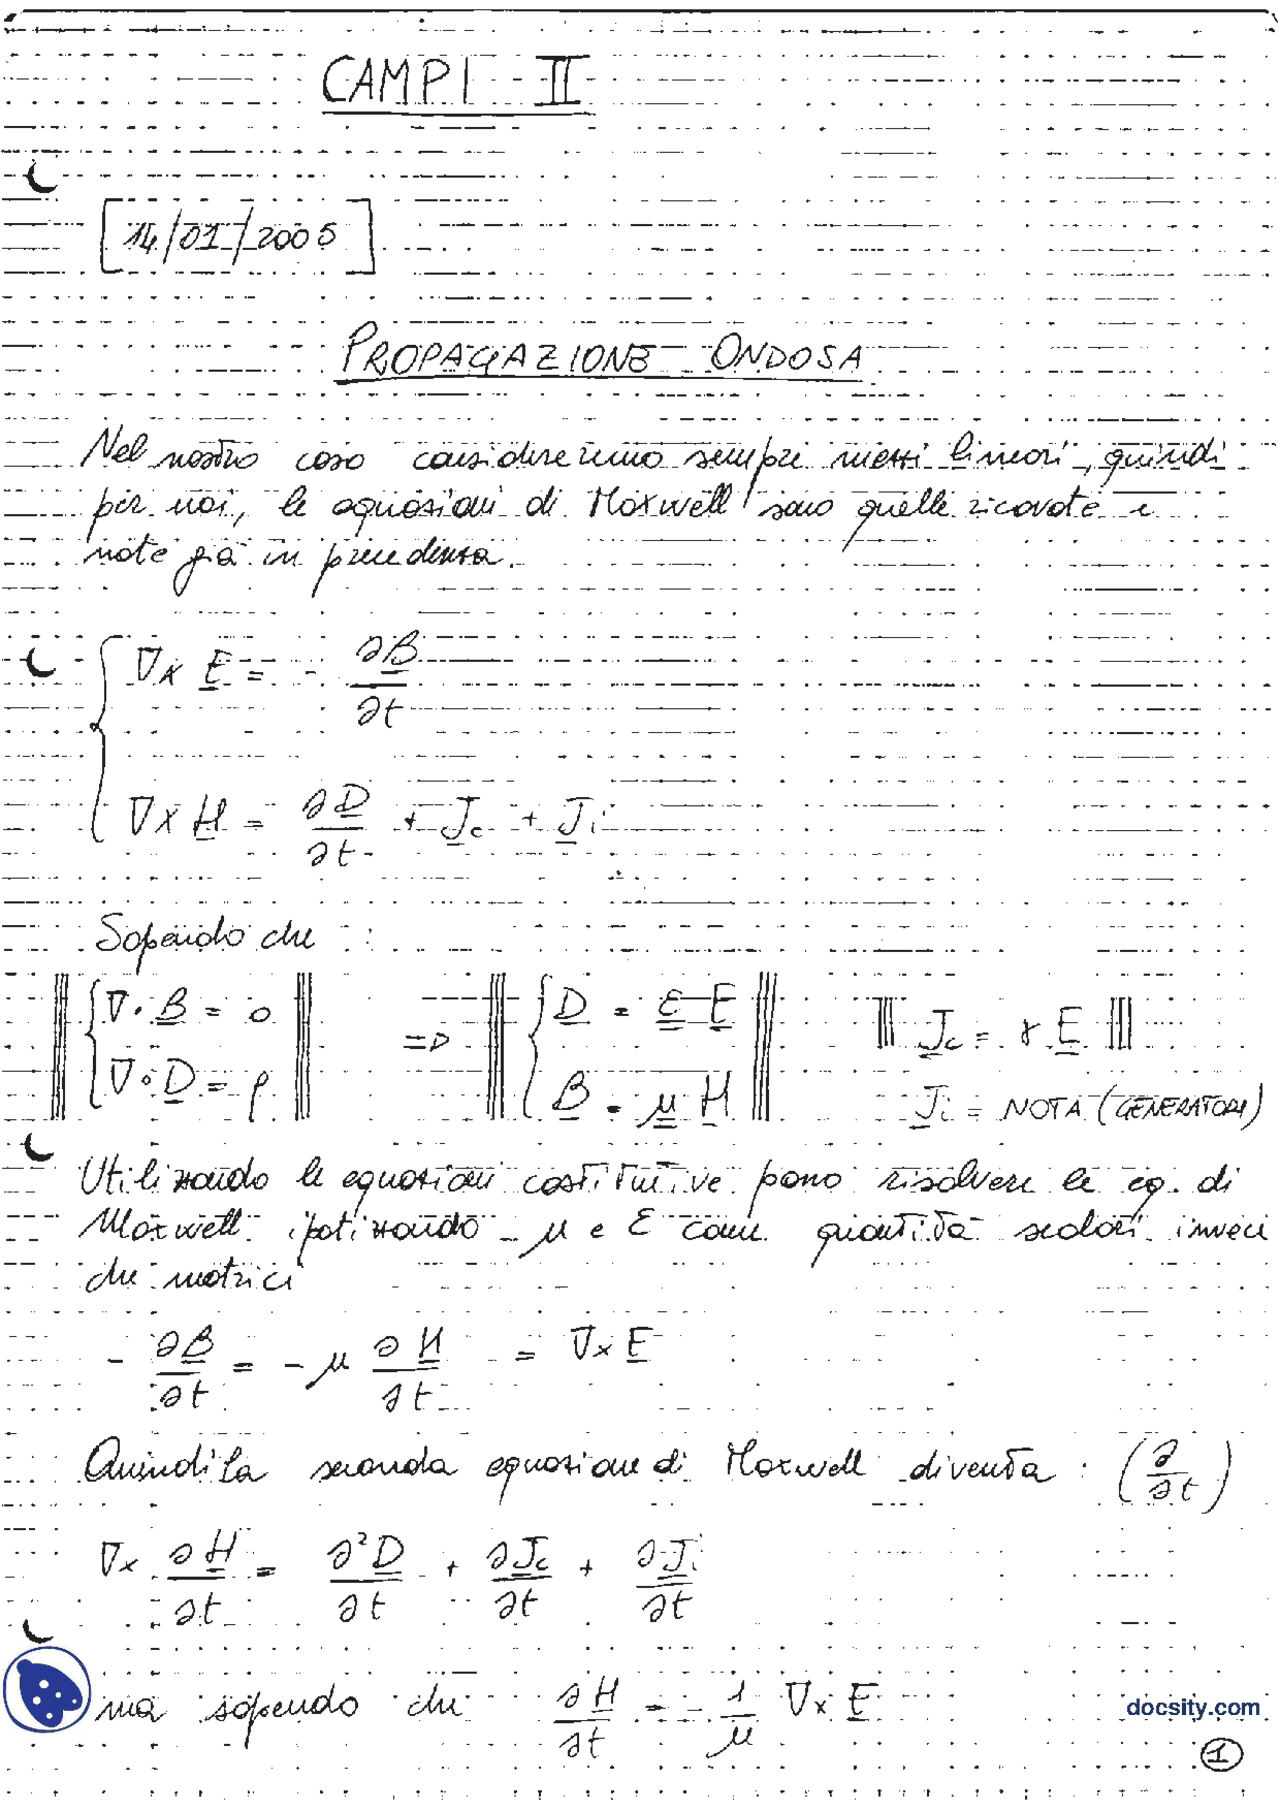 CAMPI II
[14/01/2005]
PROPAGAZIONE ONDOSA
Nel nostro caso considereremo sempre mezzi lineari, quindi
per noi, le equazioni di Maxwell sono quelle ricavate e
note già in precedenza.
{ ∇x E = - ∂B/∂t
∇x H = ∂D/∂t + Jc + Ji
Sapendo che :
{ ∇·B = 0 => { D = ε E Jc = γ E
∇·D = ρ B = μ H Ji = NOTA (GENERATORI)
Utilizzando le equazioni costitutive posso risolvere le eq. di
Maxwell ipotizzando μ e ε come quantità scalari invece
che matrici
- ∂B/∂t = - μ ∂H/∂t = ∇x E
Quindi la seconda equazione di Maxwell diventa : (∂/∂t)
∇x ∂H/∂t = ∂²D/∂t + ∂Jc/∂t + ∂Ji/∂t
ma sapendo che ∂H/∂t = - 1/μ ∇x E
docsity.com
1